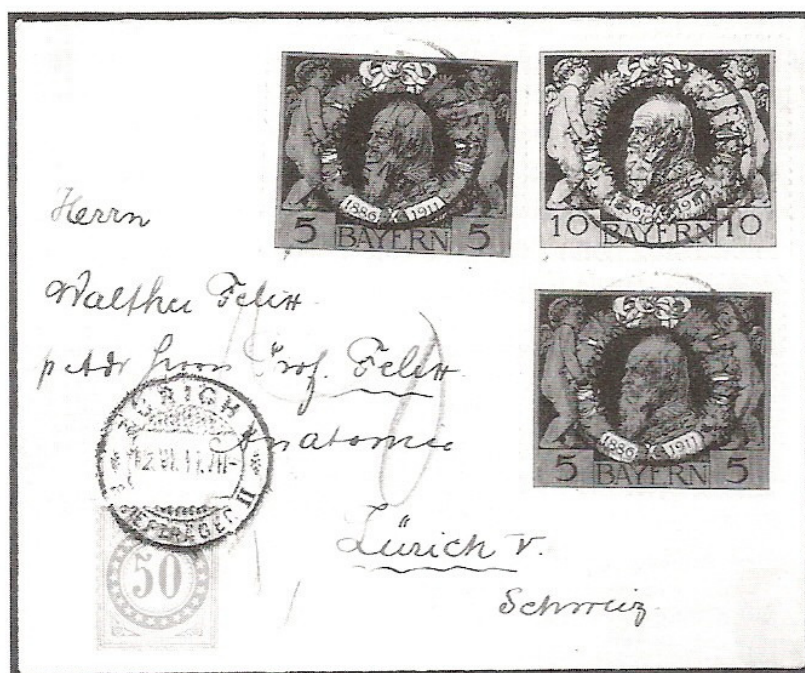 1886 1911
5 BAYERN 5
1886 1911
10 BAYERN 10
1886 1911
5 BAYERN 5
Herrn
Walther Felix
p Adr Herrn Prof. Felix
Anatomie
Zürich V.
Schweiz
ZÜRICH
BRIEFTRÄGER II
50